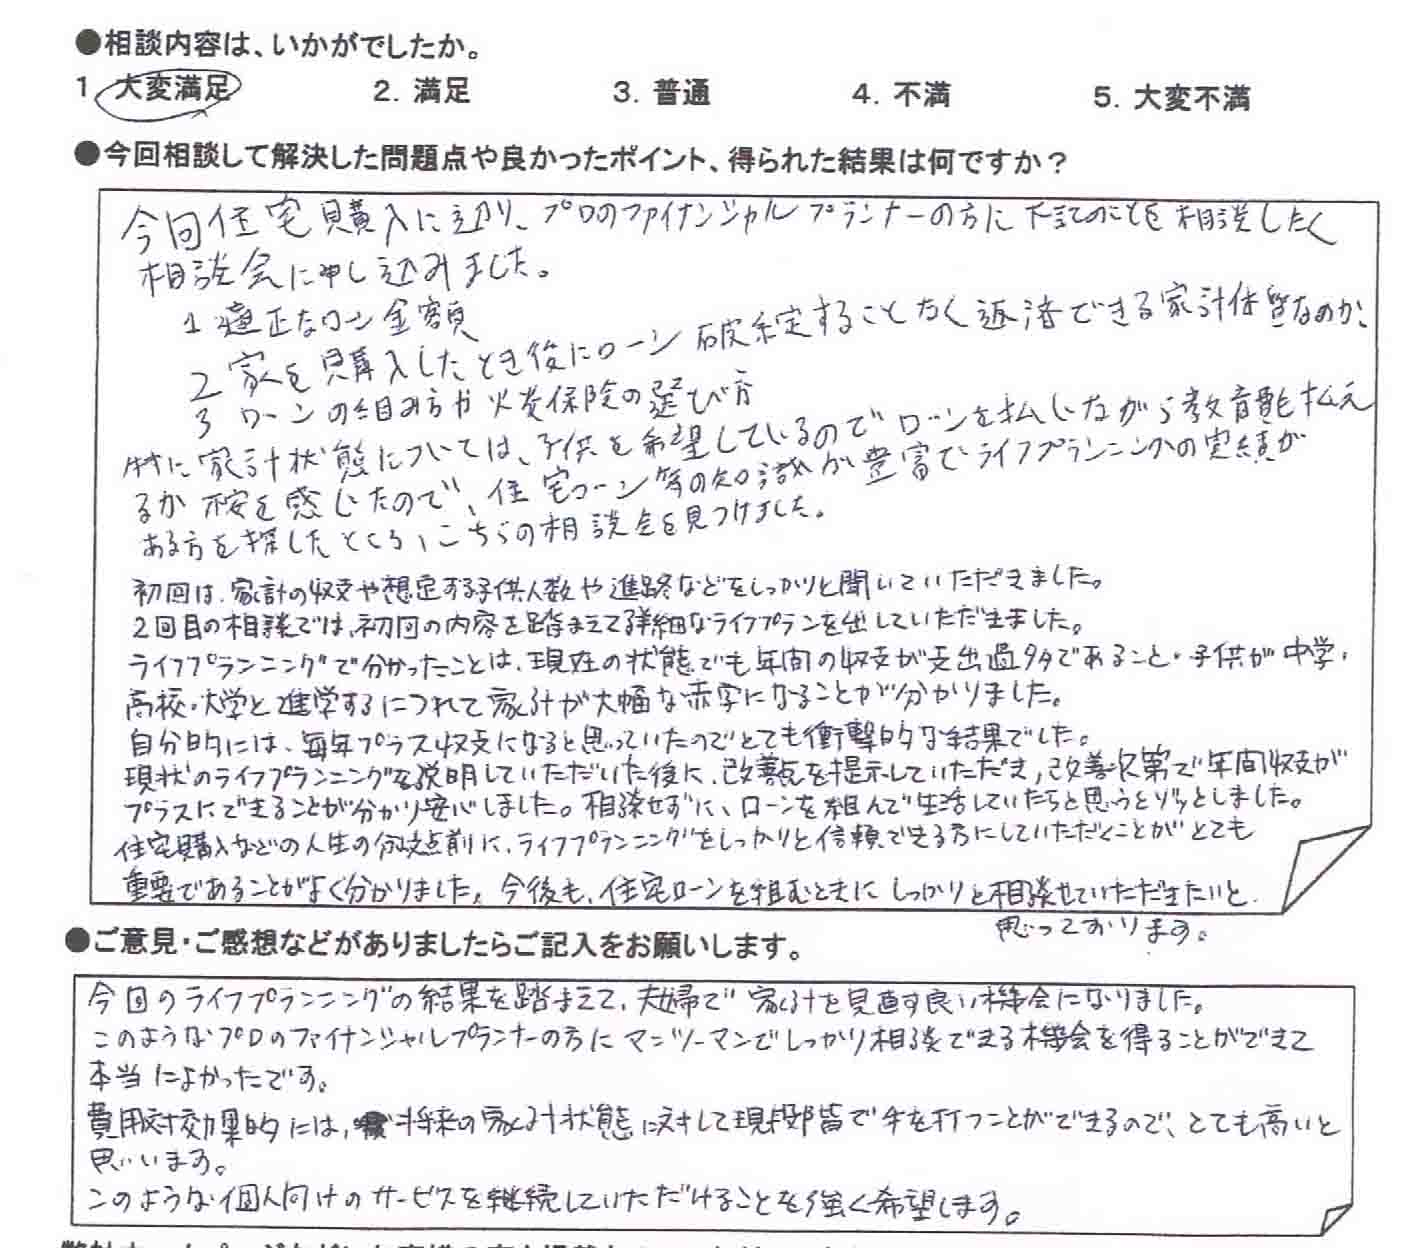 ●相談内容は、いかがでしたか。
1 大変満足 2. 満足 3. 普通 4. 不満 5. 大変不満
●今回相談して解決した問題点や良かったポイント、得られた結果は何ですか？
今回住宅購入に辺り、プロのファイナンシャルプランナーの方に下記のことを相談したく
相談会に申し込みました。
1 適正なローン金額
2 家を購入したとき後にローン破綻することなく返済できる家計体質なのか、
3 ローンの組み方や火災保険の選び方
特に家計状態については、子供を希望しているのでローンを払いながら教育費払え
るか不安を感じたので、住宅ローン等の知識が豊富でライフプランニングの実績が
ある方を探したところ、こちらの相談会を見つけました。
初回は、家計の収支や想定する子供人数や進路などをしっかりと聞いていただきました。
2回目の相談では、初回の内容を踏まえて詳細なライフプランを出していただきました。
ライフプランニングで分かったことは、現在の状態でも年間の収支が支出過多であること・子供が中学・
高校・大学と進学するにつれて家計が大幅な赤字になることが分かりました。
自分的には、毎年プラス収支になると思っていたのでとても衝撃的な結果でした。
現状のライフプランニングを説明していただいた後に、改善点を提示していただき、改善次第で年間収支が
プラスにできることが分かり安心しました。相談せずに、ローンを組んで生活していたらと思うとゾッとしました。
住宅購入などの人生の分岐点前に、ライフプランニングをしっかりと信頼できる方にしていただくことがとても
重要であることがよく分かりました。今後も、住宅ローンを組むときにしっかりと相談せていただきたいと
思っております。
●ご意見・ご感想などがありましたらご記入をお願いします。
今回のライフプランニングの結果を踏まえて、夫婦で家計を見直す良い機会になりました。
このようなプロのファイナンシャルプランナーの方にマンツーマンでしっかり相談できる機会を得ることができて
本当によかったです。
費用対効果的には、将来の家計状態に対して現段階で手を打つことができるので、とても高いと
思います。
このような個人向けのサービスを継続していただけることを強く希望します。